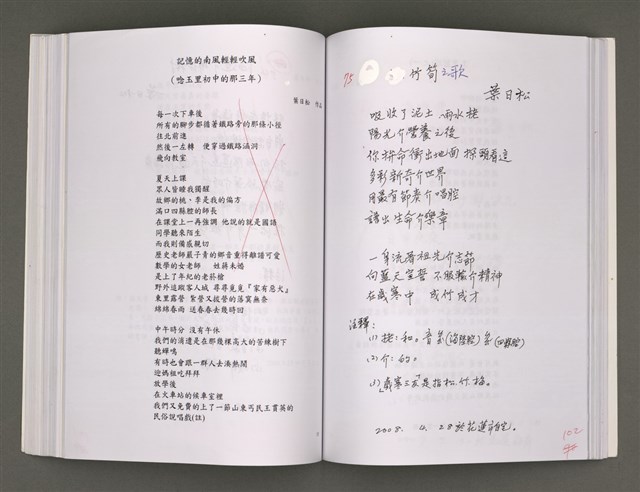 記憶的南風輕輕吹風
（唸玉里初中的那三年）
葉日松 作品
每一次下車後
所有的腳步都循著鐵路旁的那條小徑
往北前進
然後一左轉 便穿過鐵路涵洞
飛向教室
夏天上課
眾人皆睡我獨醒
故鄉的桃、李是我的偏方
滿口四縣腔的師長
在課堂上一再強調 他說的就是國語
同學聽來陌生
而我則備感親切
歷史老師嚴子青的鄉音重得離譜可愛
數學的女老師 姓蔣未婚
是上了年紀的老菸槍
野外追蹤客人城 尋尋覓覓『家有惡犬』
東里露營 紮營又拔營的落寞無奈
綿綿春雨 送春春去幾時回
中午時分 沒有午休
我們的消遣是在那幾棵高大的苦楝樹下
聽蟬鳴
有時也會跟一群人去湊熱鬧
迎媽祖吃拜拜
放學後
在火車站的候車室裡
我們又免費的上了一節山東丐民王貫英的
民俗說唱戲(註)
75
竹筍之歌
葉日松
吸收了泥土 雨水㧯
陽光介營養之後
你拼命衝出地面 探頭看這
多彩新奇介世界
用最有節奏介唱腔
譜出生命介樂章
一身流著祖先介志節
向藍天宣誓 不服輸介精神
在歲寒中 成竹成才
註釋：
(2) 介：的。
(3)「歲寒三友」是指松、竹、梅。
2008. 4. 28於花蓮市自宅。
102